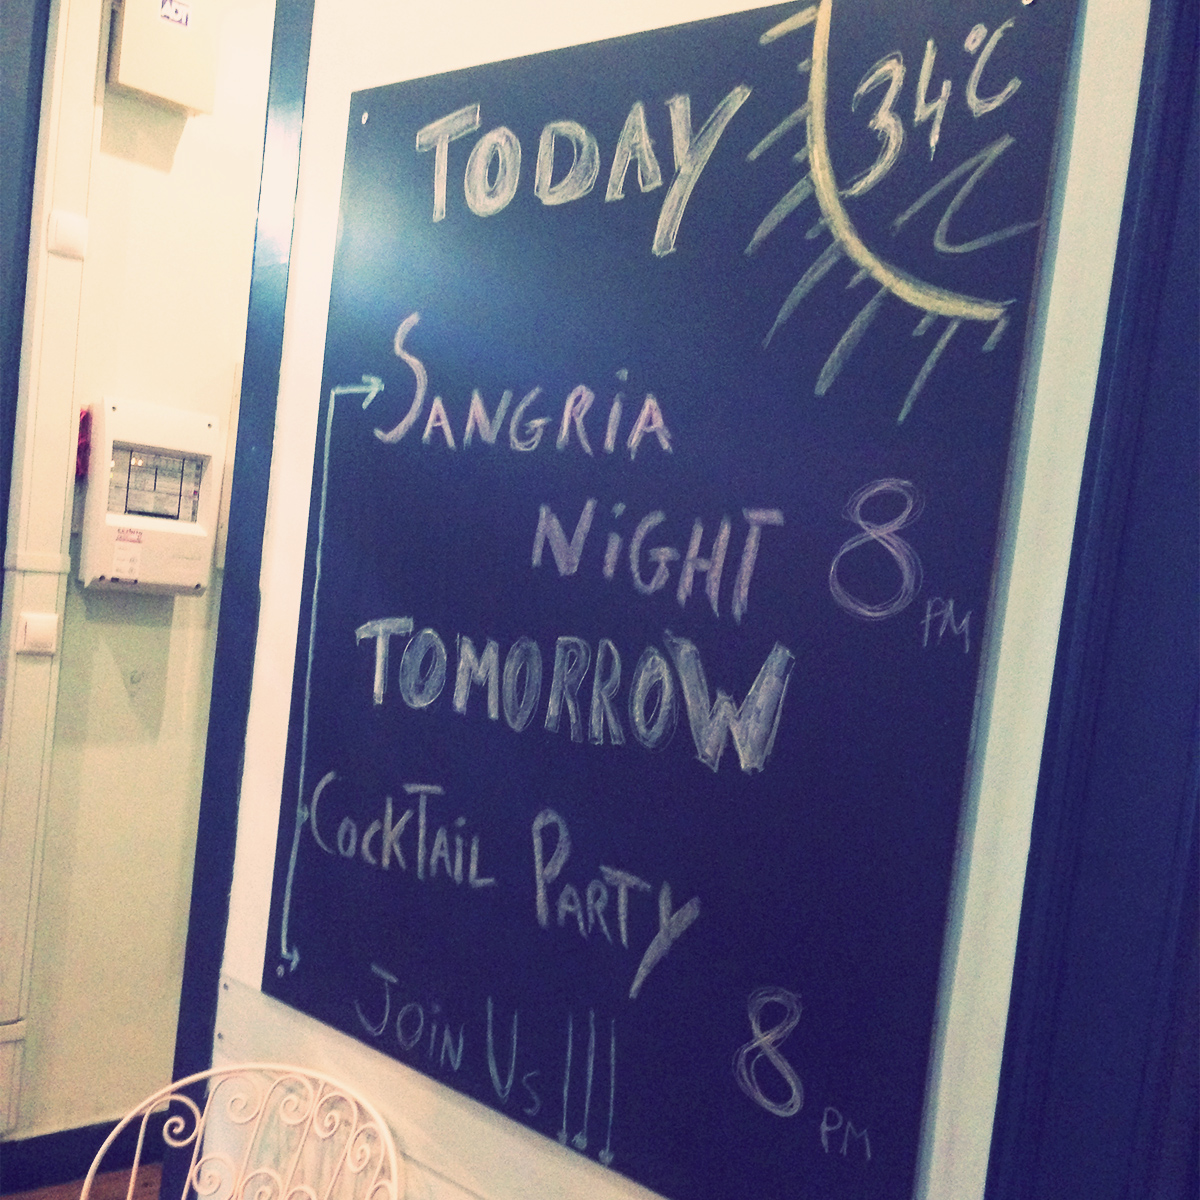 ADT
TODAY
34°C
SANGRiA
NiGHT 8 PM
TOMORROW
COCKTAiL PARTY
JOiN US !!! 8 PM